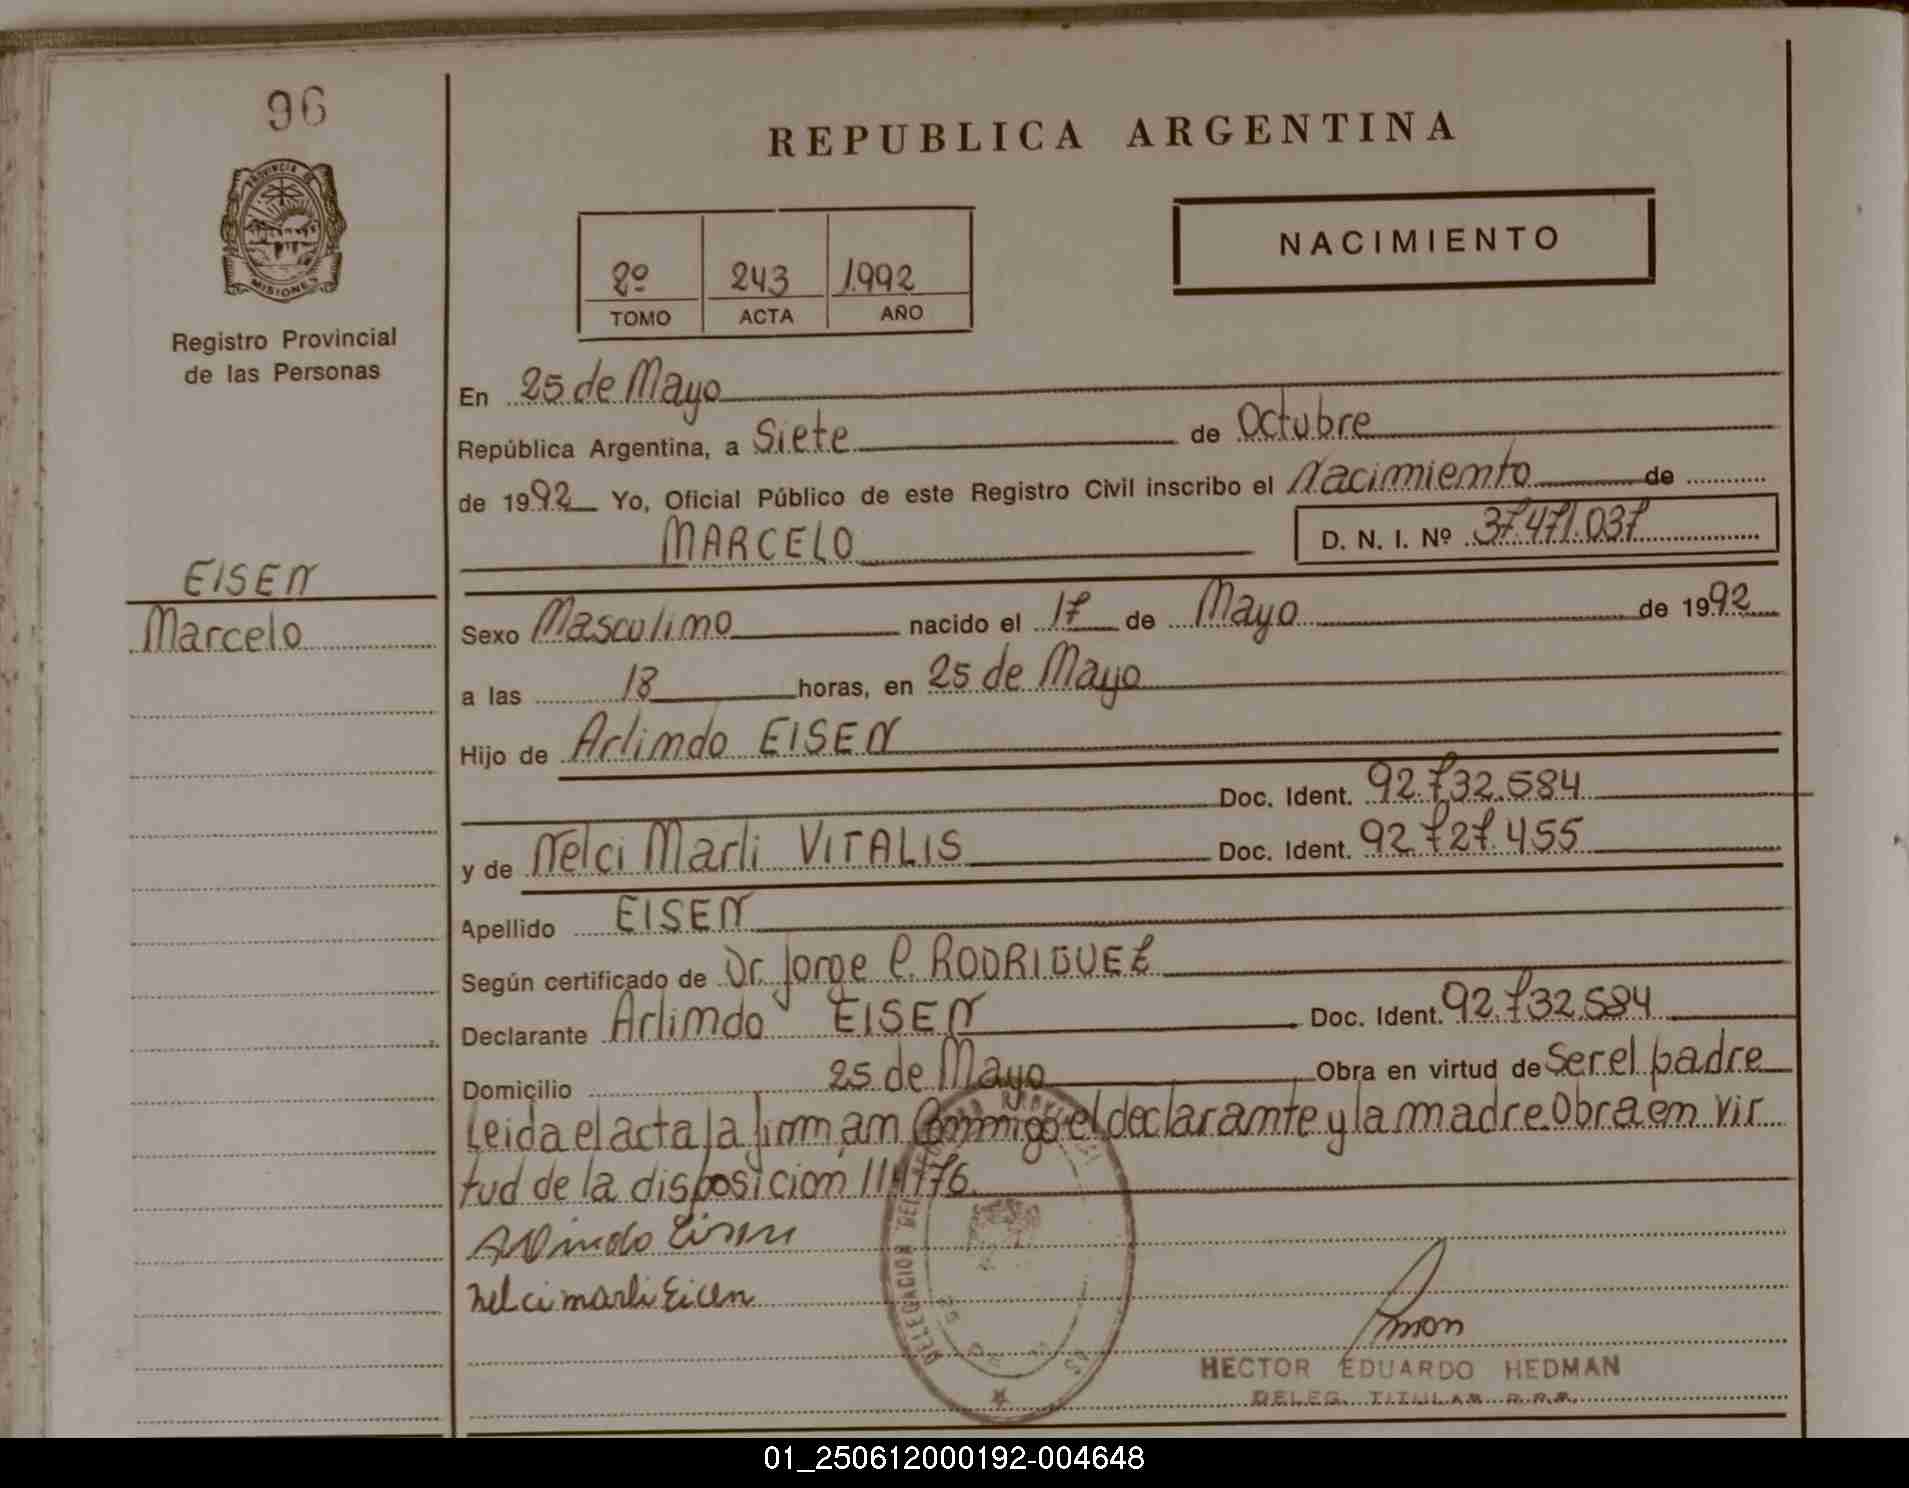 96
PROVINCIA DE
MISIONES
Registro Provincial
de las Personas
EISEN
Marcelo
REPUBLICA ARGENTINA
NACIMIENTO
2º 243 1992
TOMO ACTA AÑO
En 25 de Mayo
República Argentina, a Siete de Octubre
de 1992 Yo, Oficial Público de este Registro Civil inscribo el Nacimiento de
MARCELO D. N. I. Nº 37.471.037
Sexo Masculino nacido el 17 de Mayo de 1992
a las 18 horas, en 25 de Mayo
Hijo de Arlindo EISEN
Doc. Ident. 92.732.584
y de Nelci Marli VITALIS Doc. Ident. 92.727.455
Apellido EISEN
Según certificado de Dr. Jorge C. RODRIGUEZ
Declarante Arlindo EISEN Doc. Ident. 92.732.584
Domicilio 25 de Mayo Obra en virtud de Ser el padre
Leida el acta la firman Conmigo el declarante y la madre Obra en vir
tud de la disposicion 114/76.
Arlindo Eisen
Nelci marli Eicen
DELEGACION DEL
HECTOR EDUARDO HEDMAN
DELEG. TITULAR R.P.P.
01_250612000192-004648